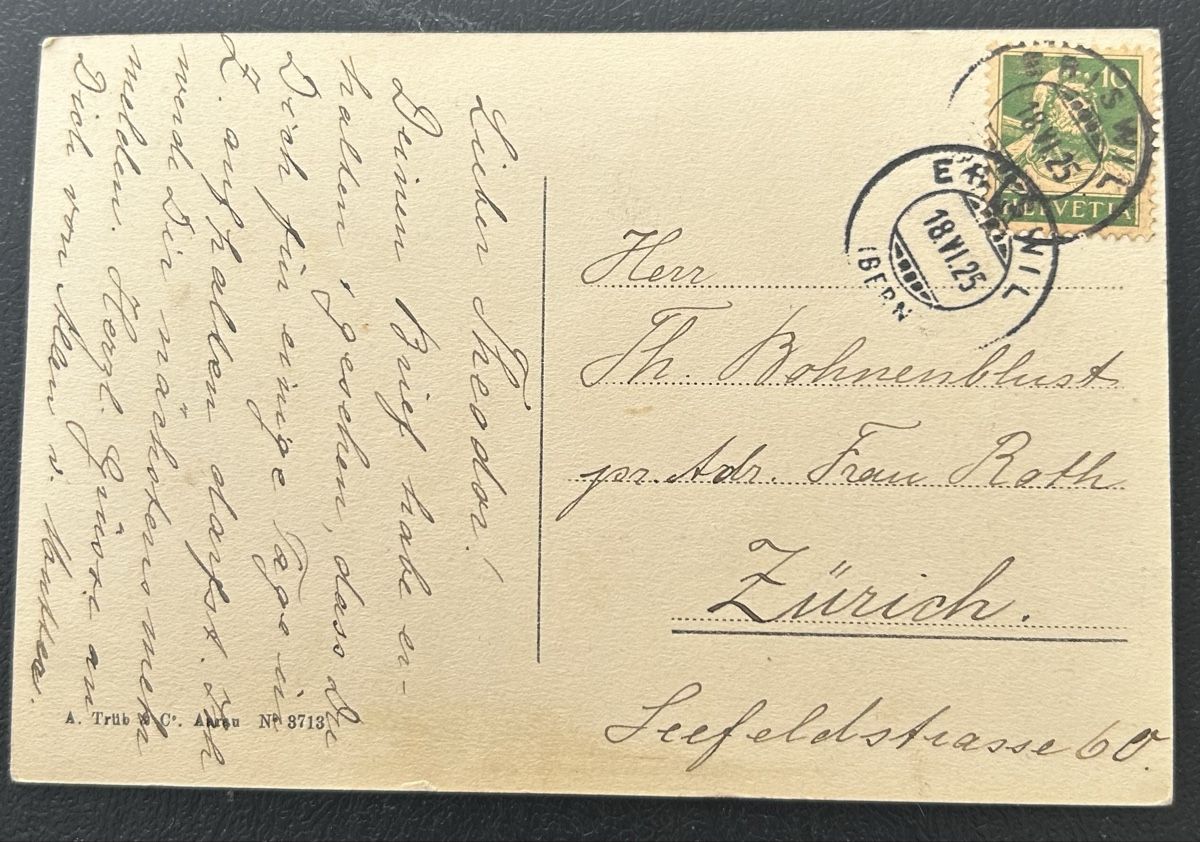 Lieber Theodor!
Deinen Brief habe er-
halten, gesehen, dass Du
Dich für einige Tage in
Z. aufhalten darfst. Ich
werde Dir nächstens mehr
melden. Herzl. Grüsse an
Dich von Allen u.
A. Trüb & Cº. Aarau Nº 3713
10
HELVETIA
ERISWIL
18.VI.25
ERISWIL
18.VI.25
(BERN
Herr
Th. Bohnenblust
pr. Adr. Frau Roth
Zürich.
Seefeldstrasse 60.